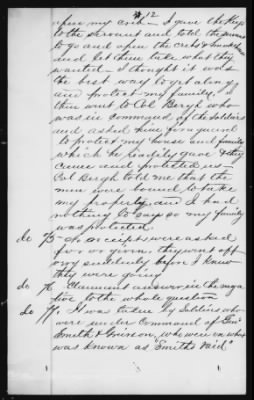 #12
upon my crib - I gave the Keys
to the servant and told the servant
to go and open the cribs & smokehouse
and let them take what they
wanted - I thought it was
the best way to get along
and protect my family, I
then went to Col Bergh who
was in command of the Soldiers
and asked him for a guard
to protect my house and family
which he readily gave & they
came and protected us
Col Bergh told me that the
men were bound to take
my property and I had
nothing to say so my family
was protected.
do 75- No receipts were asked
for or given. they went off
very suddenly before I knew
they were going
do 76 Claimant answers in the nega
tive to the whole question
do 77. It was taken by Soldiers who
were under Command of Genl
Smith & Grierson, who were in what
was known as "Smiths raid"